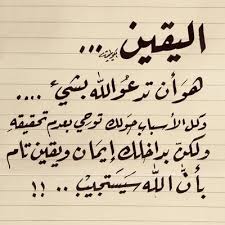 اليقين ...
هو أن تدعُو الله بشيء ....
وكل الأسباب حولك توحي بعدم تحقيقهِ
ولكن بداخلك إيمان ويقين تام
بأن الله سيستجيب .. !!